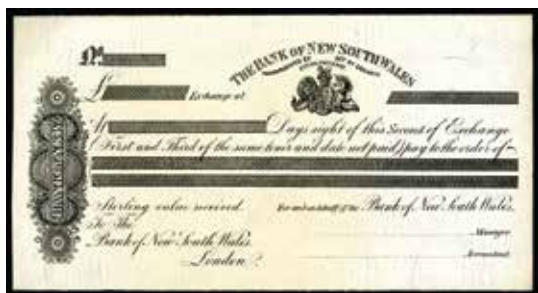 No.
THE BANK OF NEW SOUTH WALES
£ Exchange at
At Days sight of this Second of Exchange
(First and Third of the same tenor and date not paid) pay to the order of
Sterling value received. For and on behalf of the Bank of New South Wales,
To The
Bank of New South Wales. Manager
London. Accountant